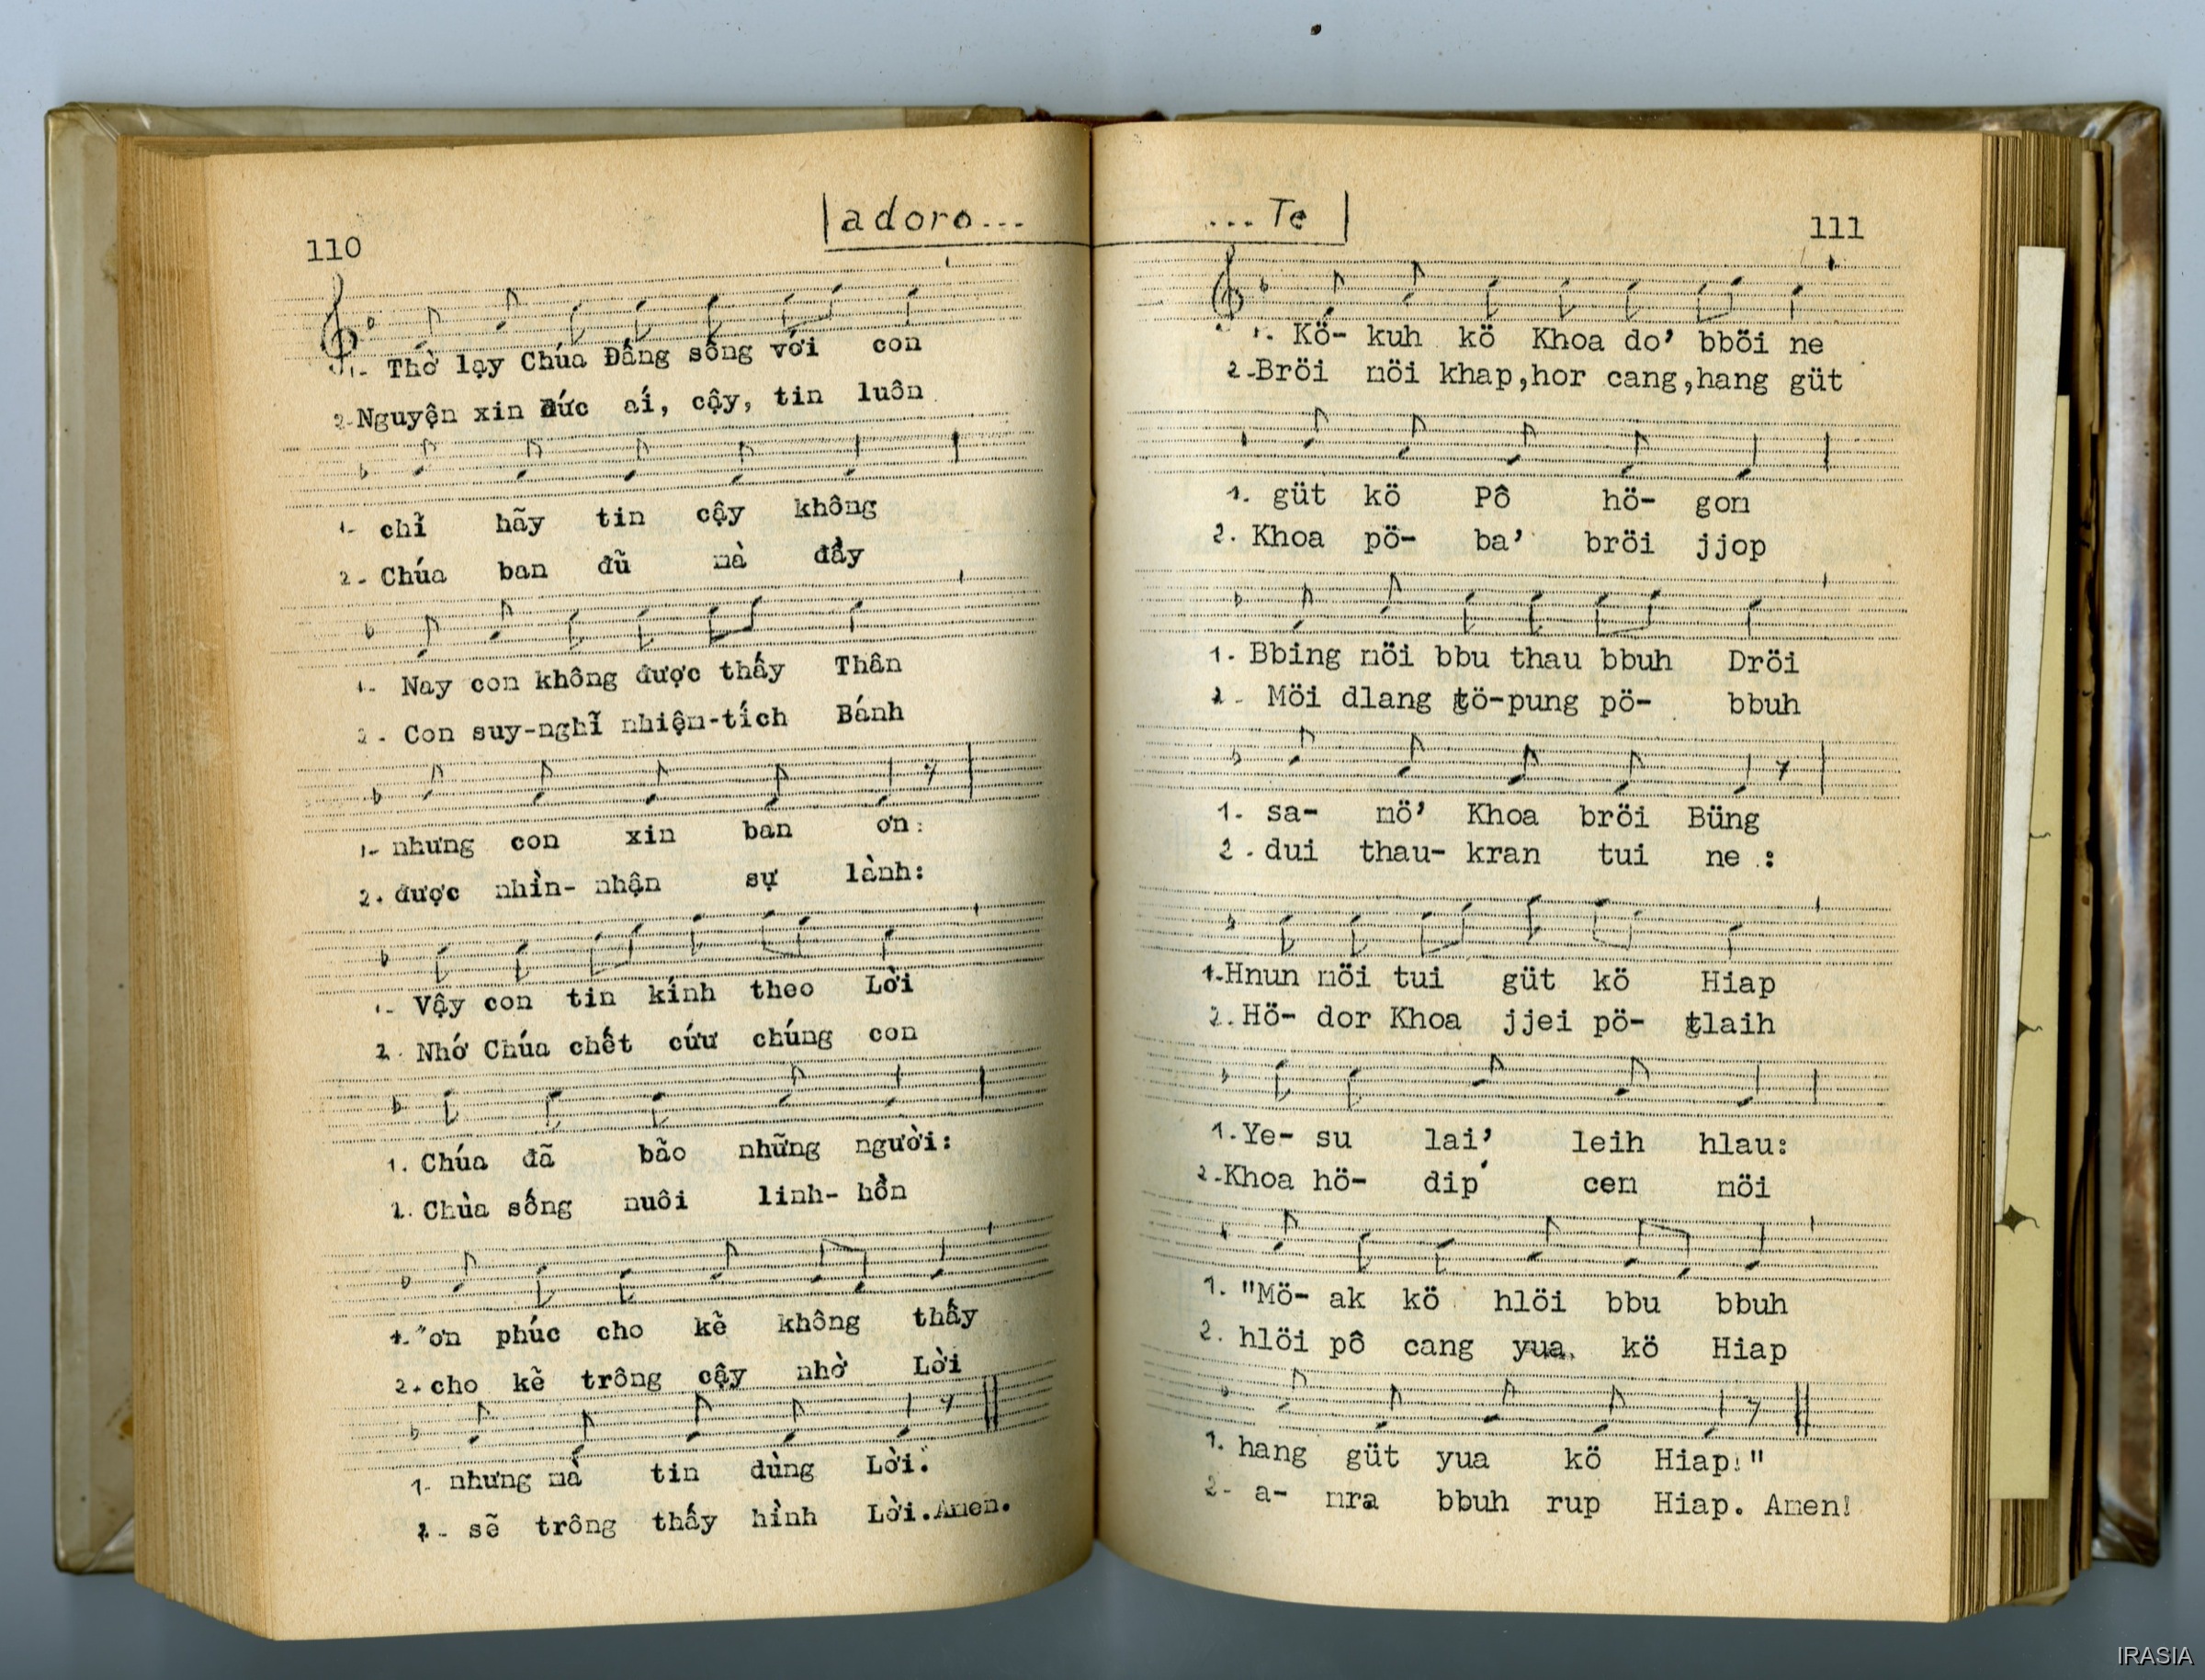 110
adoro...
1- Thờ lạy Chúa Đấng sống với con
2-Nguyện xin đức ái, cậy, tin luôn
1- chỉ hãy tin cậy không
2- Chúa ban đũ mà đầy
1- Nay con không được thấy Thân
2- Con suy-nghĩ nhiệm-tích Bánh
1- nhưng con xin ban ơn:
2. được nhìn- nhận sự lành:
1- Vậy con tin kính theo Lời
2. Nhớ Chúa chết cứu chúng con
1. Chúa đã bão những người:
2. Chùa sống nuôi linh- hồn
1-"ơn phúc cho kẽ không thấy
2. cho kẽ trông cậy nhờ Lời
1- nhưng mà tin dùng Lời."
2- sẽ trông thấy hình Lời.Amen.
...Te
111
1. Kö- kuh kö Khoa do' bböi ne
2-Bröi möi khap,hor cang,hang güt
1. güt kö Pô hö- gon
2. Khoa pö- ba' bröi jjop
1. Bbing möi bbu thau bbuh Dröi
2- Möi dlang tö-pung pö- bbuh
1. sa- mö' Khoa bröi Büng
2. dui thau- kran tui ne :
1.Hnun möi tui güt kö Hiap
2. Hö- dor Khoa jjei pö- tlaih
1.Ye- su lai' leih hlau:
2.Khoa hö- dip' cem möi
1. "Mö- ak kö hlöi bbu bbuh
2. hlöi pô cang yua kö Hiap
1. hang güt yua kö Hiap!"
2- a- mra bbuh rup Hiap. Amen!
IRASIA